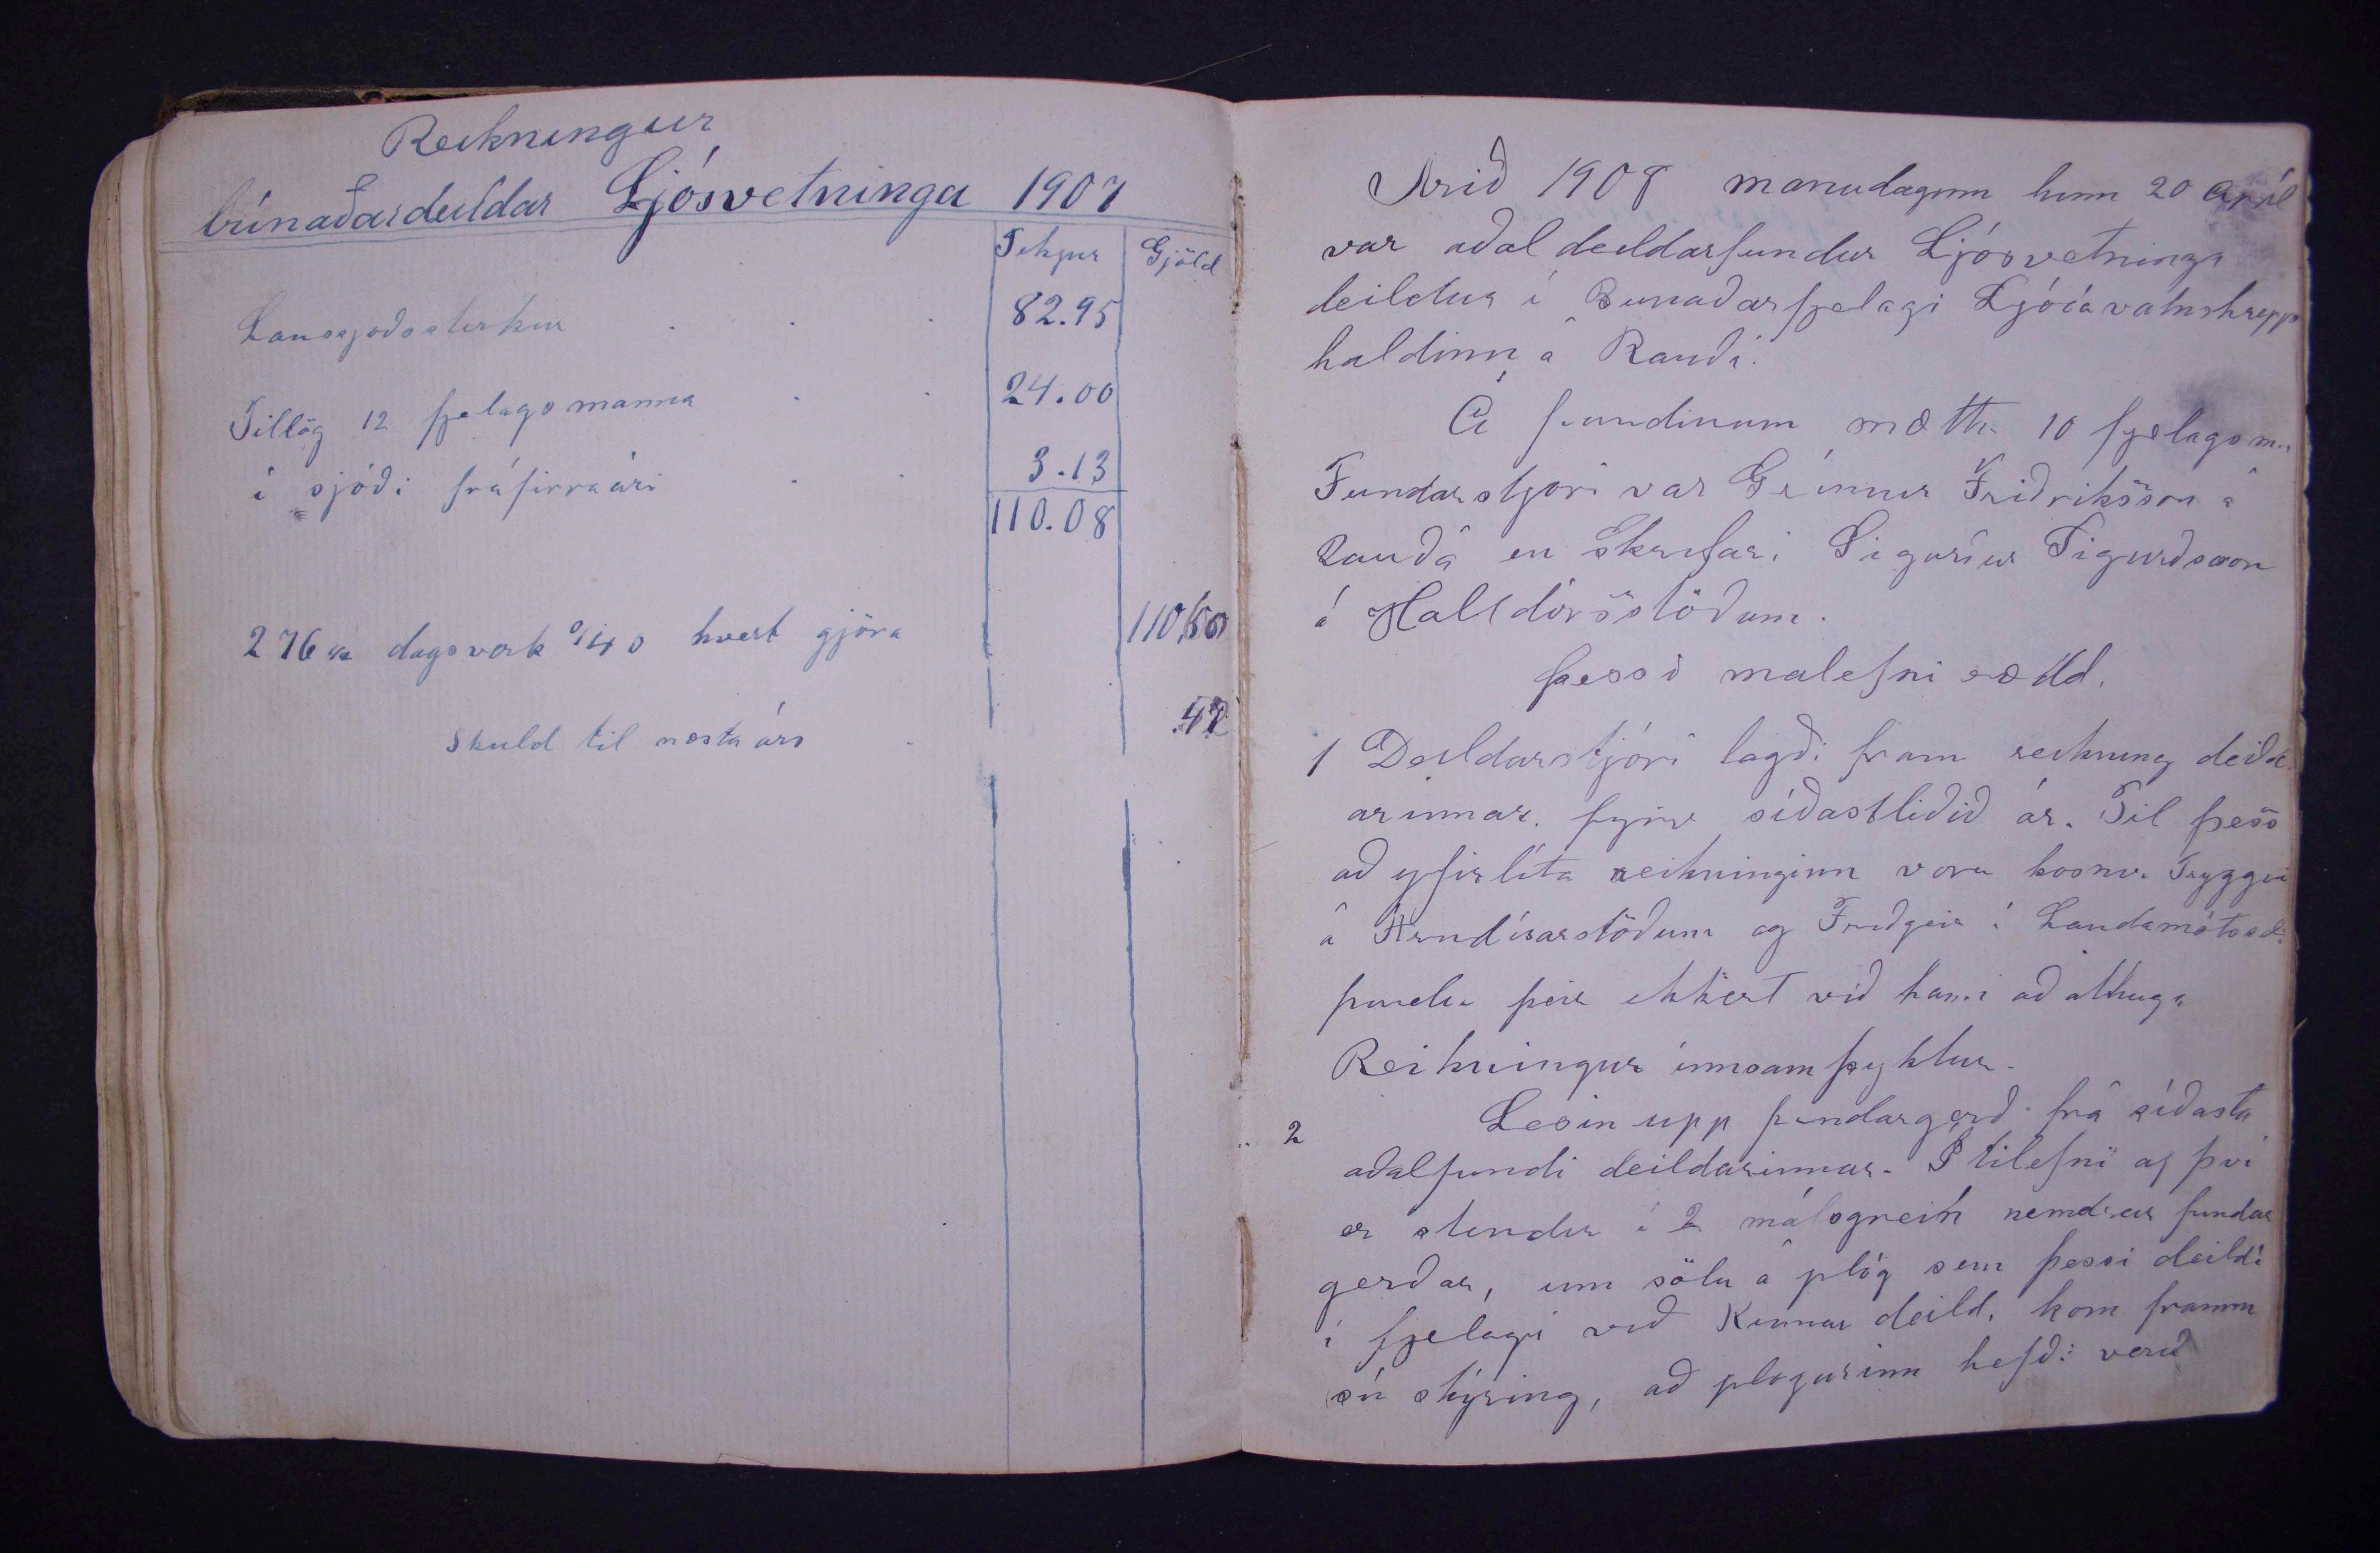 Reikningur
búnaðardeildar Ljósvetninga 1907
Tekjur Gjöld
Lanssjoðsstirkur . . . 82.95
Tillög 12 fjelagsmanna . . 24.00
í sjóði fráfirraári . . 3.13
110.08
276 1/2 dagsverk á 0/40 hvert gjöra 110/60
Skuld til næsta árs . .42
Arið 1908 manudaginn hinn 20 Apríl
var aðal deildarfundur Ljósvetninga
deildar í Bunaðarfjelagi Ljósavatnshrepps
haldinn á Rauðá.
Á fundinum mættu 10 fjelagsm.
Fundarstjóri var Grímur Friðriksson á
Rauðá en Skrifari Sigurður Sigurðsson
á Halldórsstöðum.
þessi malefni rædd.
1 Deildarstjóri lagði fram reikning deild
arinnar fyrir síðastliðið ár. Til þess
að yfirlíta reikninginn voru kosnir Tryggvi
á Arndísarstöðum og Friðgeir í Landamótsseli
fundu þeir ekkert við hann að athuga
Reikningur innsamþyktur.
2 Lesin upp fundargerð frá síðasta
aðalfundi deildarinnar. Í tilefni af því
er stendur í 2 málsgrein nemdrar fundar
gerðar, um sölu á plóg sem þessi deild á
í fjelagi við Kinnar deild, kom framm
sú skýring, að plogurinn hefði verið